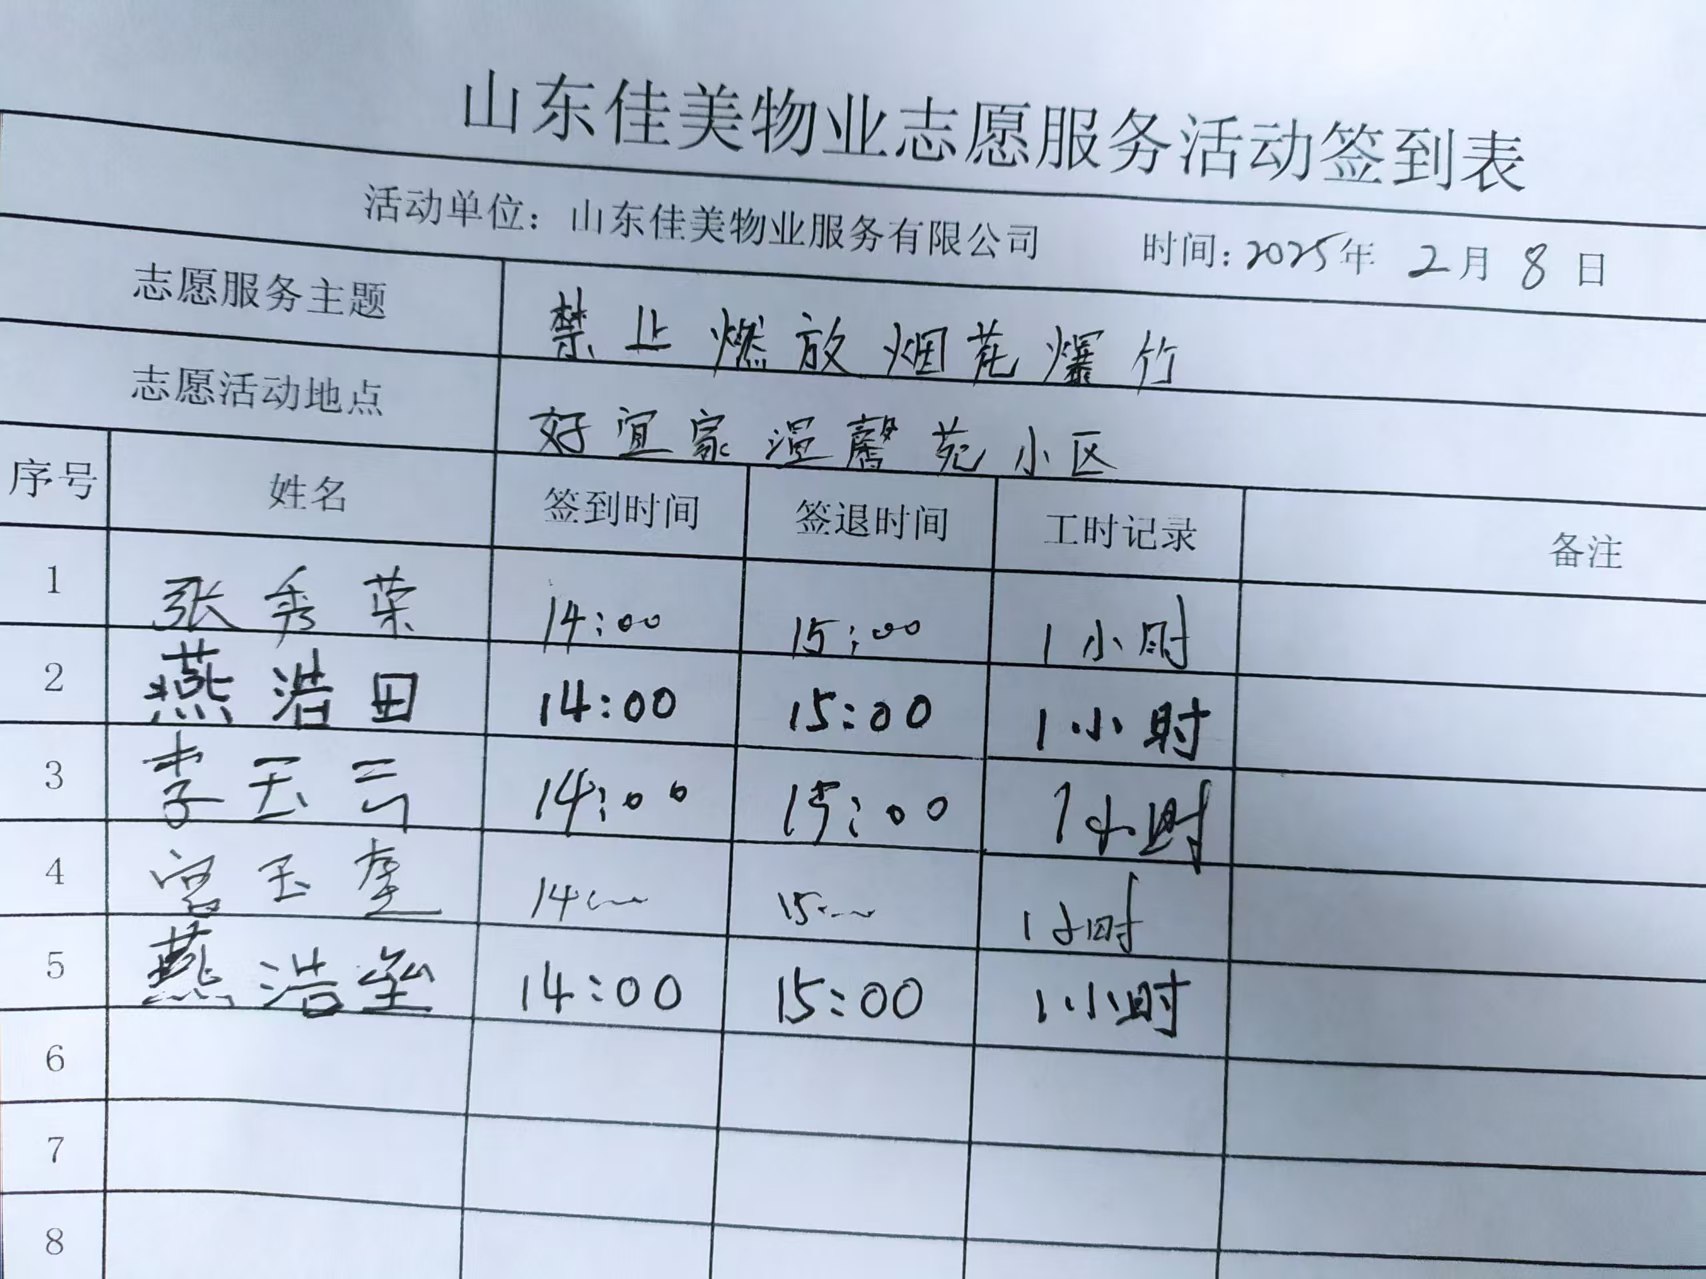 山东佳美物业志愿服务活动签到表
活动单位：山东佳美物业服务有限公司 时间：2025年 2月 8日
志愿服务主题 禁止燃放烟花爆竹
志愿活动地点 好宜家温馨苑小区
序号 姓名 签到时间 签退时间 工时记录 备注
1 张秀荣 14:00 15:00 1小时
2 燕浩田 14:00 15:00 1小时
3 李玉云 14:00 15:00 1小时
4 宫玉奎 14:00 15:00 1小时
5 燕浩垒 14:00 15:00 1小时
6
7
8